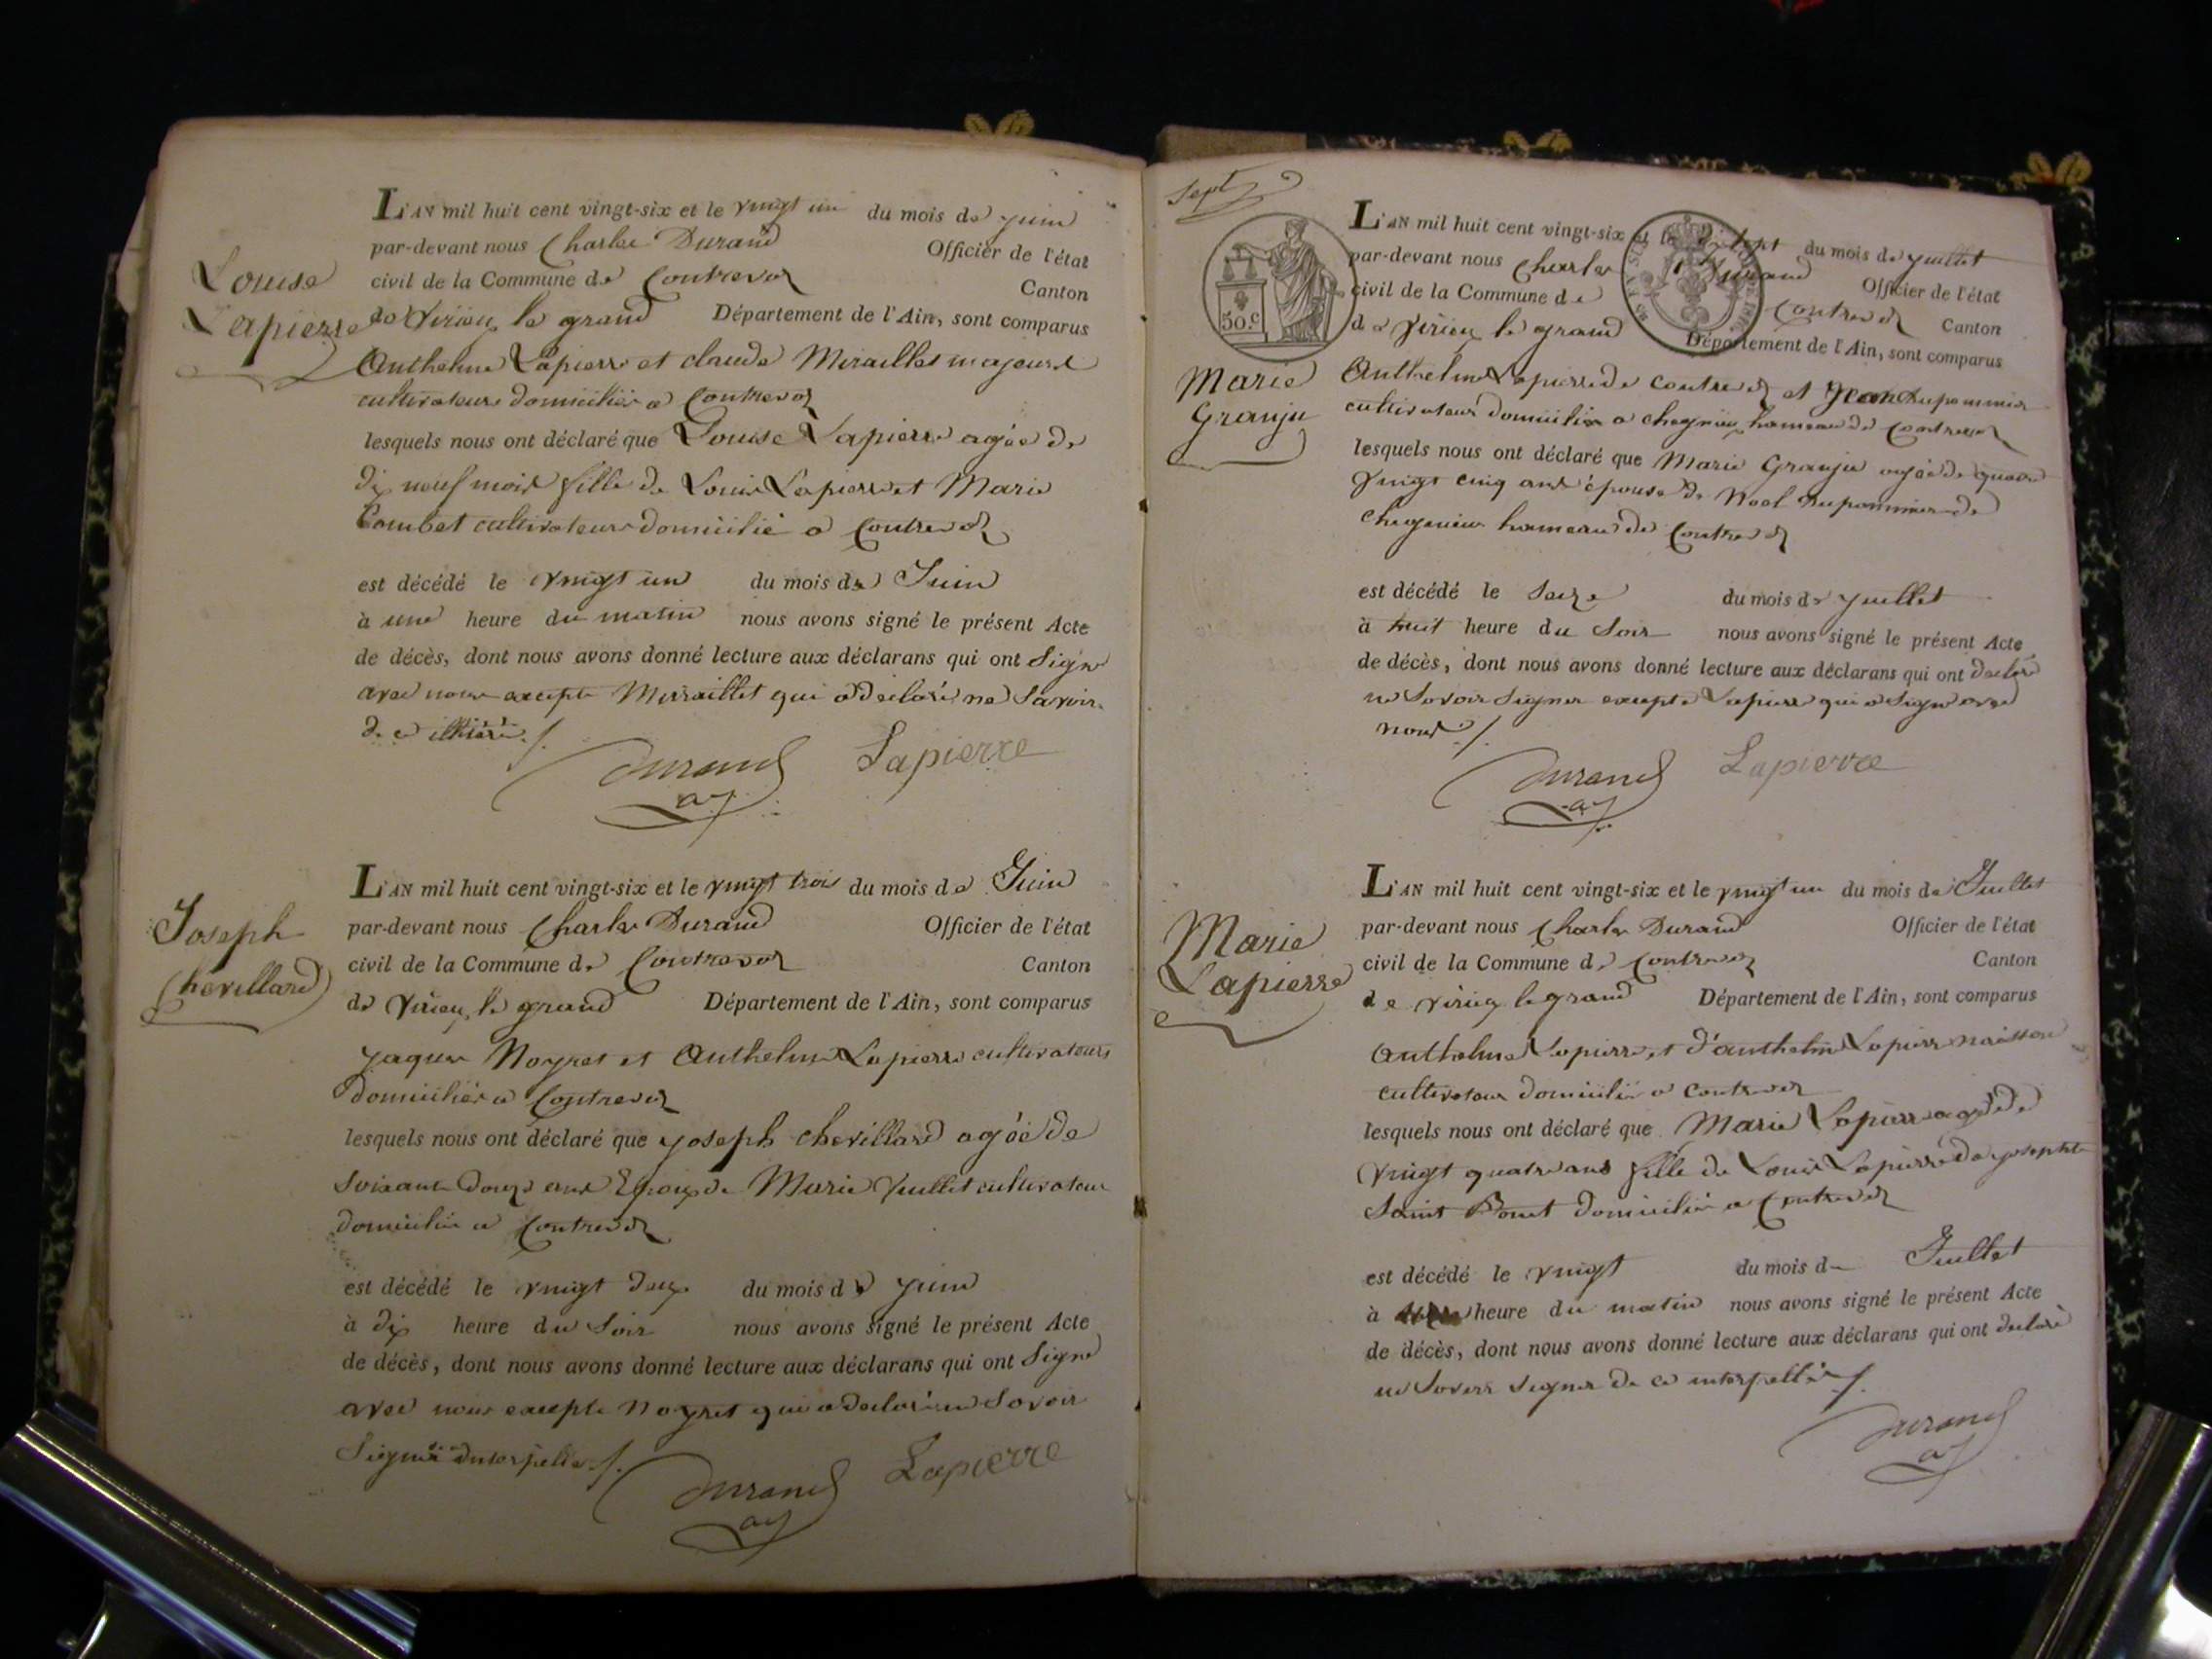 Louise
Lapierre
L'AN mil huit cent vingt-six et le vingt un du mois de juin
par-devant nous Charles Durand Officier de l'état
civil de la Commune de Contrevoz Canton
de Virieu le grand Département de l'Ain, sont comparus
Anthelme Lapierre et claude Miraillet majeurs
cultivateurs domiciliés a Contrevoz
lesquels nous ont déclaré que Louise Lapierre agée de
dix neuf mois fille de Louis Lapierre et Marie
Combet cultivateurs domicilié a Contrevoz
est décédé le vingt un du mois de Juin
à une heure du matin nous avons signé le présent Acte
de décès, dont nous avons donné lecture aux déclarans qui ont Signé
avec nous excepté Mirraillet qui a déclaré ne Savoir
de ce
Durand Lapierre
Joseph
Chevillard
L'AN mil huit cent vingt-six et le vingt trois du mois de Juin
par-devant nous Charles Durand Officier de l'état
civil de la Commune de Contrevoz Canton
de Virieu le grand Département de l'Ain, sont comparus
Jaques Noyret et Anthelme Lapierre cultivateurs
domiciliés a Contrevoz
lesquels nous ont déclaré que joseph chevillard agée de
Soixante douze ans Epoux de Marie Juillet cultivateur
domicilié a Contrevoz
est décédé le vingt deux du mois de juin
à dix heure du Soir nous avons signé le présent Acte
de décès, dont nous avons donné lecture aux déclarans qui ont Signé
avec nous excepté Noyret qui a déclaré ne Savoir
Signer
Durand Lapierre
Sept
50.c
Marie
Granju
L'AN mil huit cent vingt-six et le dix sept du mois de juillet
par-devant nous Charles Durand Officier de l'état
civil de la Commune de Contrevoz Canton
de Virieu le grand Département de l'Ain, sont comparus
Anthelme Lapierre de contrevoz et Jean Dupommier
cultivateurs domiciliés a chegnieu hameau de Contrevoz
lesquels nous ont déclaré que Marie Granju agée de quatre
vingt cinq ans épouse de Noel Dupommier de
chegnieu hameau de Contrevoz
est décédé le Seize du mois de juillet
à huit heure du Soir nous avons signé le présent Acte
de décès, dont nous avons donné lecture aux déclarans qui ont déclaré
ne Savoir Signer excepté Lapierre qui a Signé avec
nous
Durand Lapierre
Marie
Lapierre
L'AN mil huit cent vingt-six et le vingt un du mois de Juillet
par-devant nous Charles Durand Officier de l'état
civil de la Commune de Contrevoz Canton
de Virieu le grand Département de l'Ain, sont comparus
Anthelme Lapierre et d'anthelme Lapierre
cultivateur domicilié a Contrevoz
lesquels nous ont déclaré que Marie Lapierre agée de
vingt quatre ans fille de Louis Lapierre de josephte
Saint Bonet domicilié a Contrevoz
est décédé le vingt du mois de Juillet
à heure du matin nous avons signé le présent Acte
de décès, dont nous avons donné lecture aux déclarans qui ont déclaré
ne Savoir Signer de ce interpellés
Durand